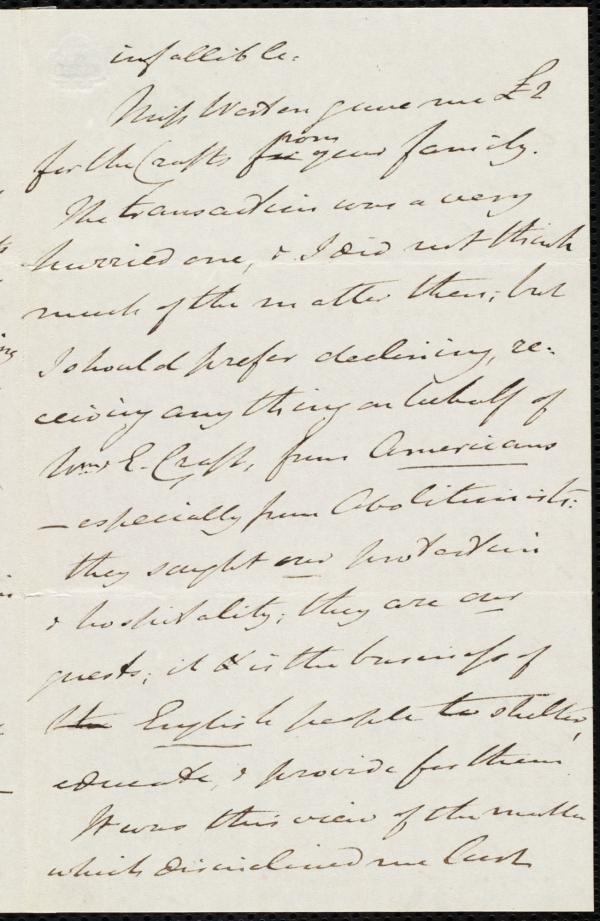 infallible.
Miss Weston gave me £2
for the Crafts from your family.
The transaction was a very
hurried one, & I did not think
much of the matter then; but
I should prefer declining, re-
ceiving any thing on behalf of
Wm & E. Craft, from Americans
- especially from Abolitionists:
they sought our protection
& hospitality; they are our
guests; it is the business of
the English people to shelter,
educate, & provide for them
It was this view of the matter
which disinclined me last